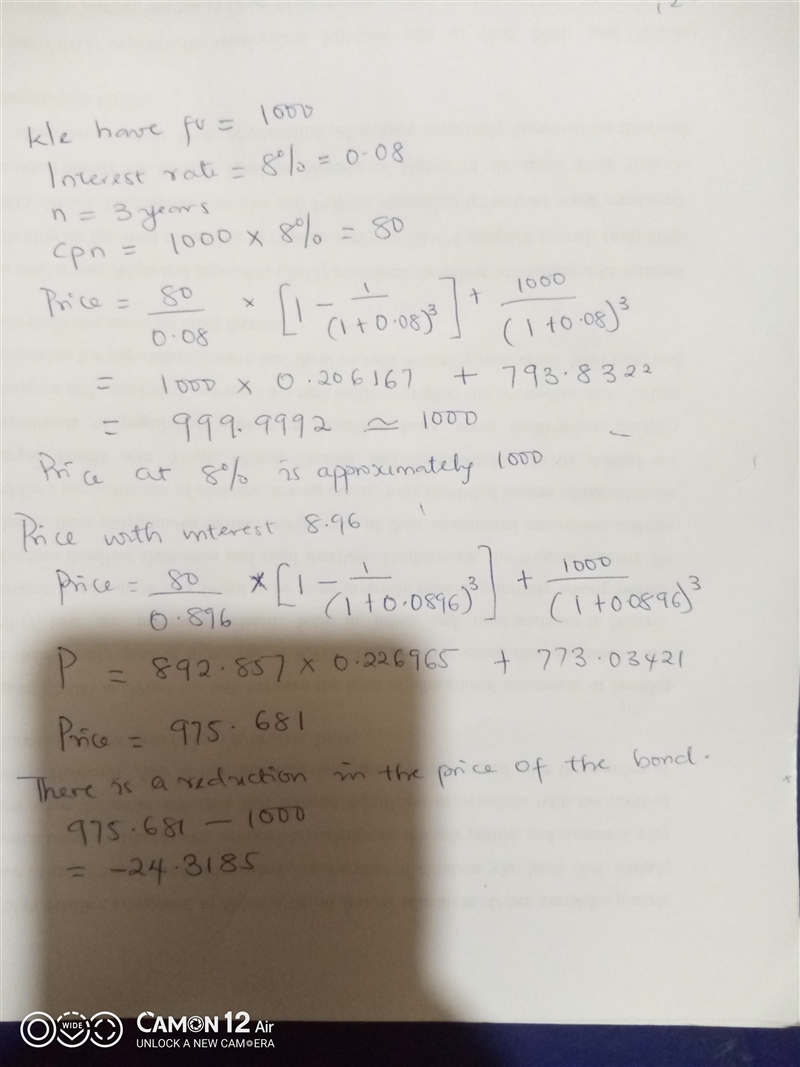 kle have fv = 1000
Interest rate = 8% = 0.08
n = 3 years
cpn = 1000 × 8% = 80
Price = 80/0.08 × [1 - 1/(1+0.08)^3] + 1000/(1+0.08)^3
= 1000 × 0.206167 + 793.8322
= 999.9992 ≃ 1000
Price at 8% is approximately 1000
Price with interest 8.96
Price = 80/0.896 × [1 - 1/(1+0.0896)^3] + 1000/(1+0.0896)^3
P = 892.857 × 0.226965 + 773.03421
Price = 975.681
There is a reduction in the price of the bond.
975.681 - 1000
= -24.3185
WIDE
CAMON 12 Air
UNLOCK A NEW CAMERA